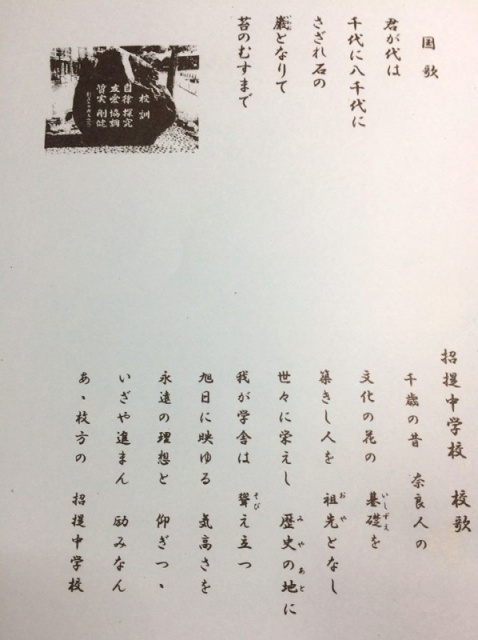 国歌
君が代は
千代に八千代に
さざれ石の
巌となりて
苔のむすまで
校訓
自律 探究
友愛 協調
質実 剛健
招提中学校 校歌
千歳の昔 奈良人の
文化の花の 基礎を
いしずえ
築きし人を 祖先となし
おや
世々に栄えし 歴史の地に
みやあと
我が学舎は 聳え立つ
そび
旭日に映ゆる 気高さを
永遠の理想と 仰ぎつゝ
いざや進まん 励みなん
あゝ枚方の 招提中学校